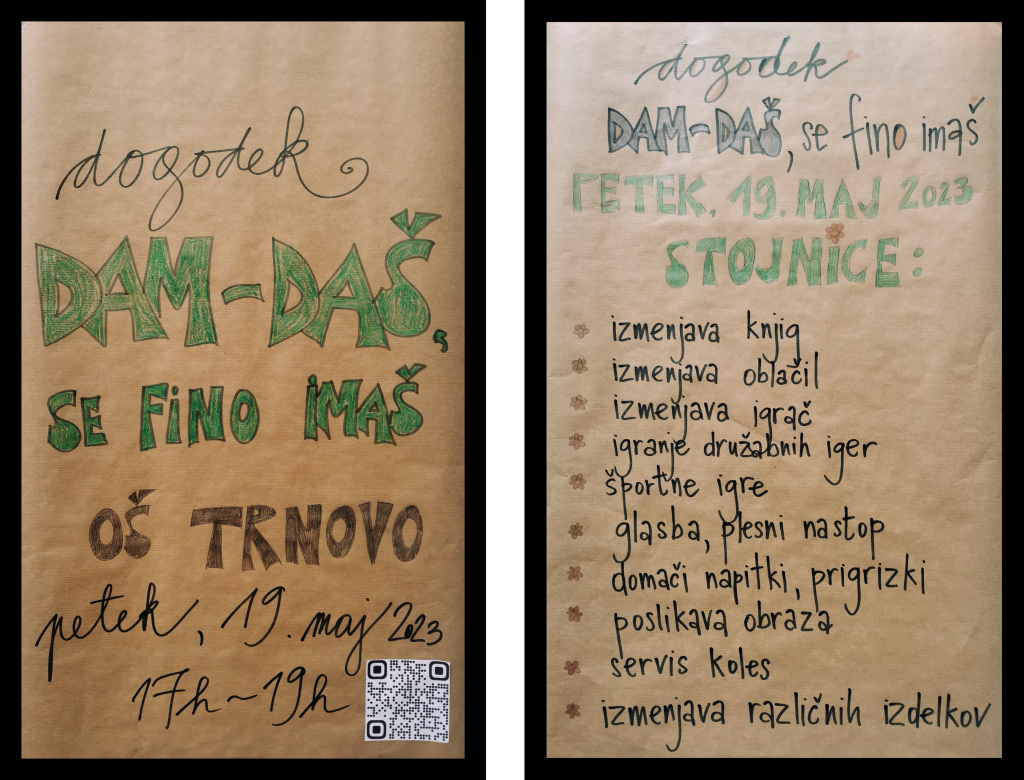 dogodek
DAM-DAŠ,
SE FiNO iMAŠ
OŠ TRNOVO
petek, 19. maj 2023
17h~19h
dogodek
DAM-DAŠ, se fino imaš
PETEK, 19. MAJ 2023
STOJNiCE:
izmenjava knjig
izmenjava oblačil
izmenjava igrač
igranje družabnih iger
športne igre
glasba, plesni nastop
domači napitki, prigrizki
poslikava obraza
servis koles
izmenjava različnih izdelkov